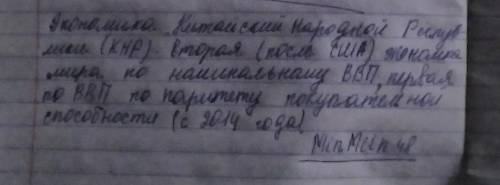 Экономика Китайский Народной Респуб-
лики (КНР). Вторая (после США) экономика
мира по наминальному ВВП, первая
по ВВП по паритету покупательной
способности (с 2014 года)